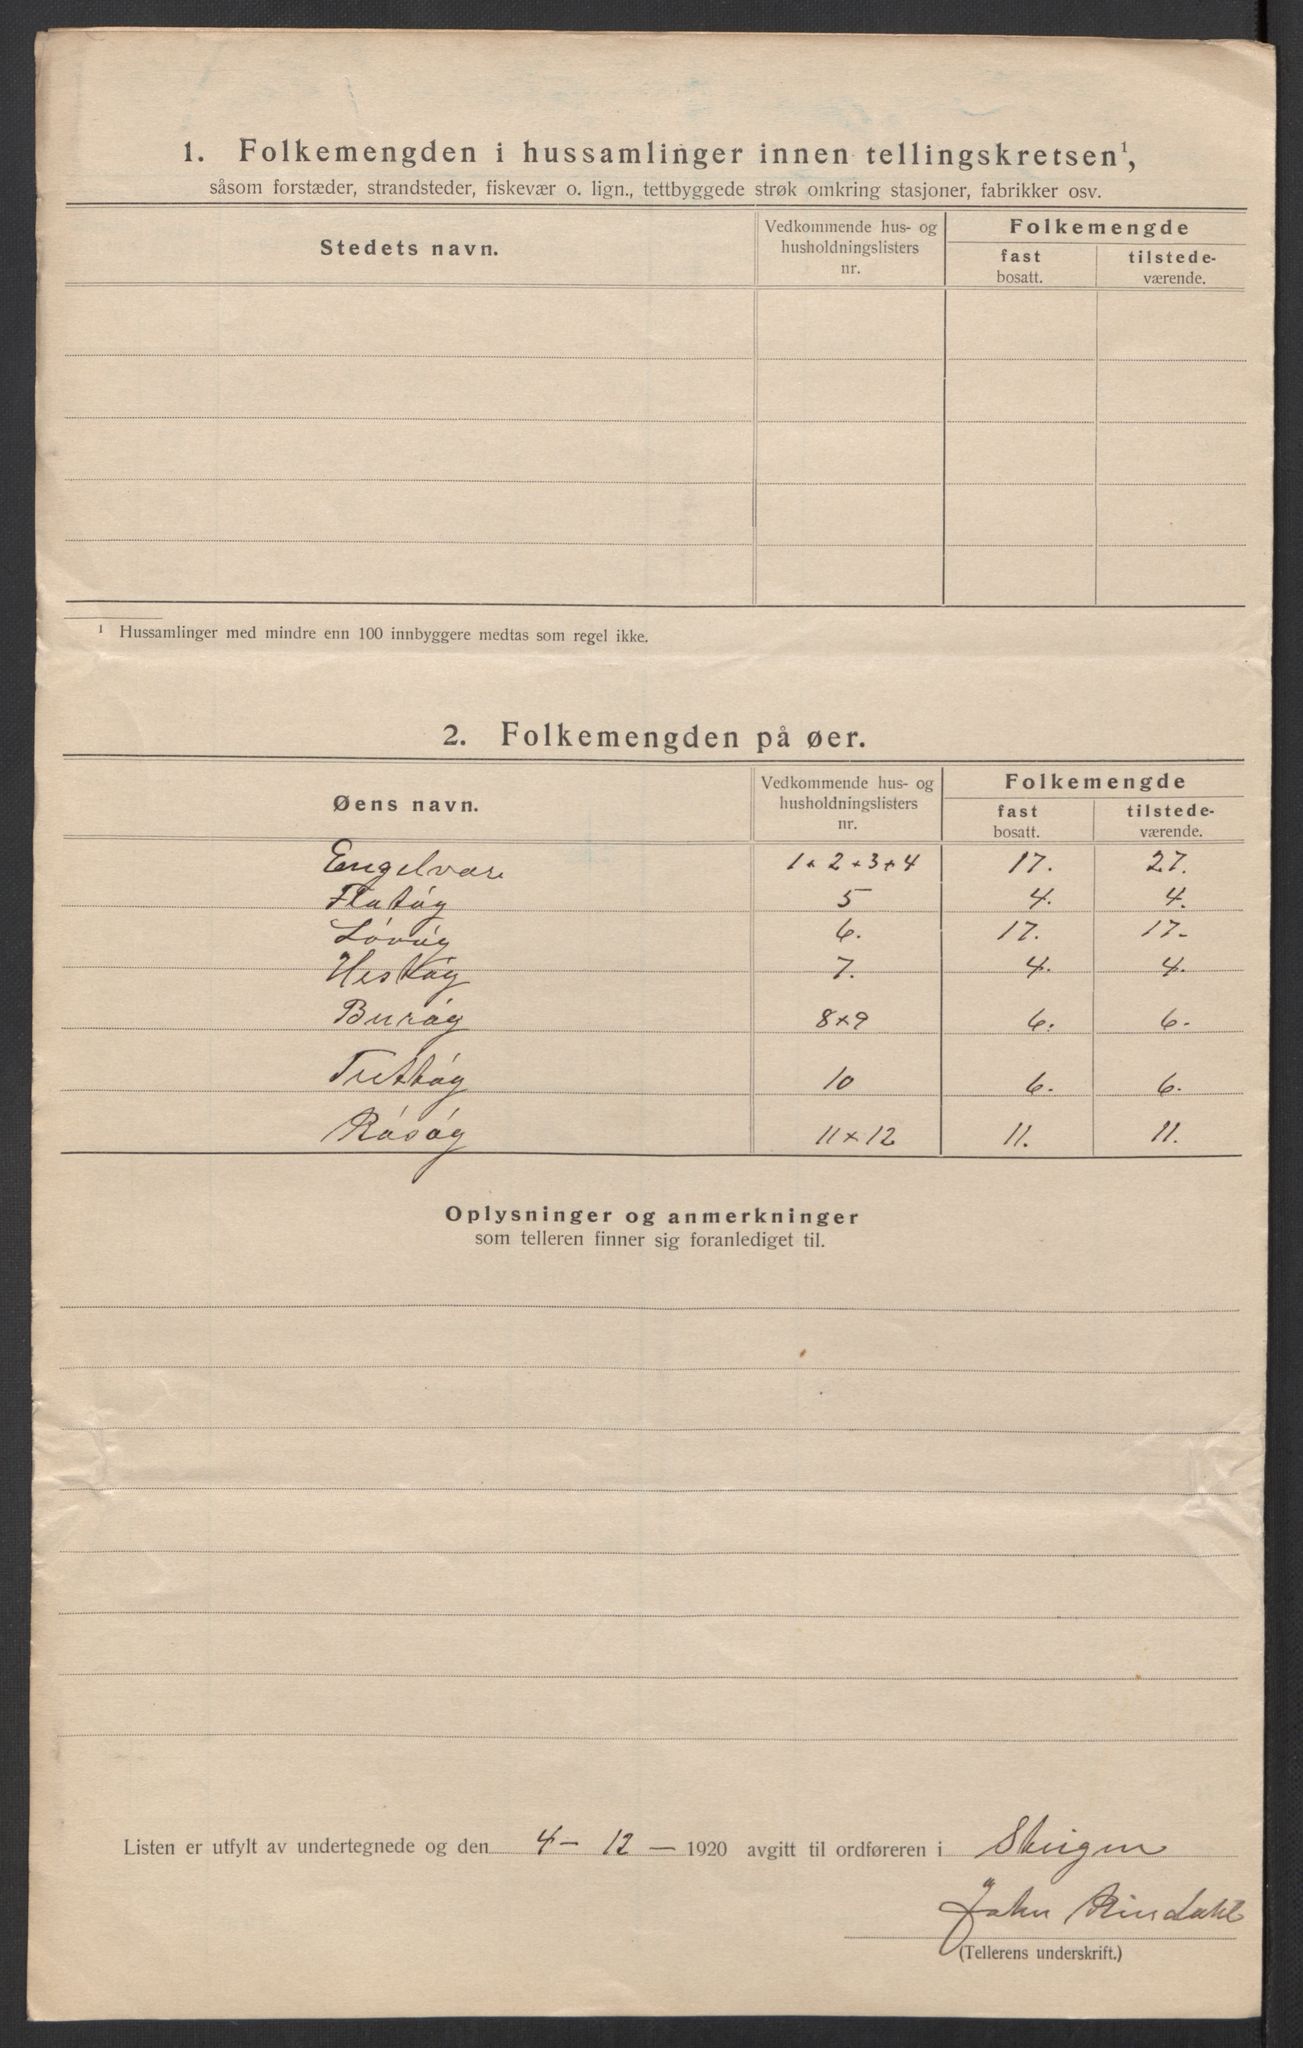 1. Folkemengden i hussamlinger innen tellingskretsen¹,
såsom forstæder, strandsteder, fiskevær o. lign., tettbyggede strøk omkring stasjoner, fabrikker osv.
Stedets navn.
Vedkommende hus- og
husholdningslisters
nr.
Folkemengde
fast
bosatt.
tilstede-
værende.
¹ Hussamlinger med mindre enn 100 innbyggere medtas som regel ikke.
2. Folkemengden på øer.
Øens navn.
Vedkommende hus- og
husholdningslisters
nr.
Folkemengde
fast
bosatt.
tilstede-
værende.
Engelvær 1 × 2 × 3 × 4 17. 27.
Flatøy 5 4. 4.
Løvøy 6. 17. 17-
Hestøy 7. 4. 4.
Burøy 8×9 6. 6.
Trettøy 10 6. 6.
Råsøy 11 × 12 11. 11.
Oplysninger og anmerkninger
som telleren finner sig foranlediget til.
Listen er utfylt av undertegnede og den 4 - 12 - 1920 avgitt til ordføreren i Steigen
John Rindahl
(Tellerens underskrift.)